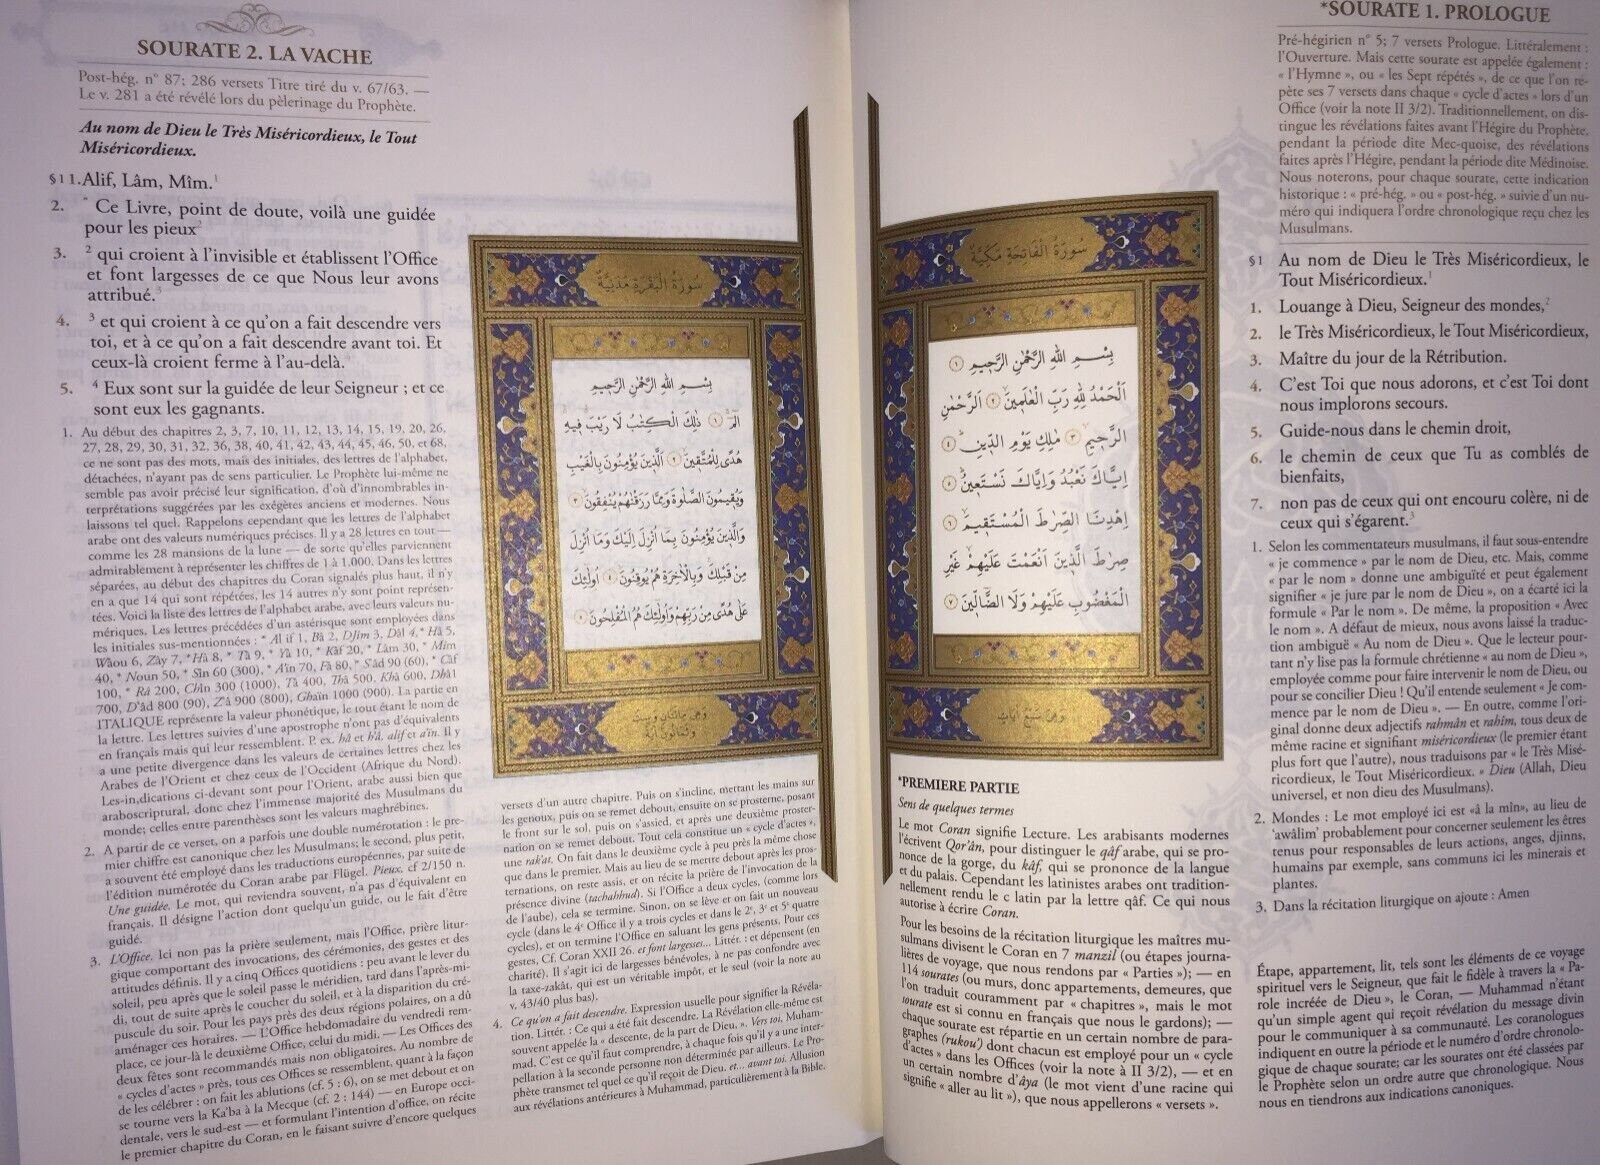 SOURATE 2. LA VACHE
Post-hég. n° 87; 286 versets Titre tiré du v. 67/63. —
Le v. 281 a été révélé lors du pèlerinage du Prophète.
Au nom de Dieu le Très Miséricordieux, le Tout
Miséricordieux.
§1 1. Alif, Lâm, Mîm.¹
2. * Ce Livre, point de doute, voilà une guidée
pour les pieux²
3. ² qui croient à l'invisible et établissent l'Office
et font largesses de ce que Nous leur avons
attribué.³
4. ³ et qui croient à ce qu'on a fait descendre vers
toi, et à ce qu'on a fait descendre avant toi. Et
ceux-là croient ferme à l'au-delà.
5. ⁴ Eux sont sur la guidée de leur Seigneur ; et ce
sont eux les gagnants.
1. Au début des chapitres 2, 3, 7, 10, 11, 12, 13, 14, 15, 19, 20, 26,
27, 28, 29, 30, 31, 32, 36, 38, 40, 41, 42, 43, 44, 45, 46, 50, et 68,
ce ne sont pas des mots, mais des initiales, des lettres de l'alphabet,
détachées, n'ayant pas de sens particulier. Le Prophète lui-même ne
semble pas avoir précisé leur signification, d'où d'innombrables in-
terprétations suggérées par les exégètes anciens et modernes. Nous
laissons tel quel. Rappelons cependant que les lettres de l'alphabet
arabe ont des valeurs numériques précises. Il y a 28 lettres en tout —
comme les 28 mansions de la lune — de sorte qu'elles parviennent
admirablement à représenter les chiffres de 1 à 1.000. Dans les lettres
séparées, au début des chapitres du Coran signalés plus haut, il n'y
en a que 14 qui sont répétées, les 14 autres n'y sont point représen-
tées. Voici la liste des lettres de l'alphabet arabe, avec leurs valeurs nu-
mériques. Les lettres précédées d'un astérisque sont employées dans
les initiales sus-mentionnées : * Al if 1, Bâ 2, DJim 3, Dâl 4,* Hâ 5,
Wâou 6, Zây 7, *Hâ 8, * Tâ 9, * Yâ 10, * Kâf 20, * Lâm 30, * Mîm
40, * Noun 50, * Sîn 60 (300), * A'in 70, Fâ 80,* S'âd 90 (60), * Câf
100, * Râ 200, Chîn 300 (1000), Tâ 400, Thâ 500, Khâ 600, Dhâl
700, D'âd 800 (90), Z'â 900 (800), Ghaïn 1000 (900). La partie en
ITALIQUE représente la valeur phonétique, le tout étant le nom de
la lettre. Les lettres suivies d'une apostrophe n'ont pas d'équivalents
en français mais qui leur ressemblent. P. ex. hâ et h'â, alif et a'in. Il y
a une petite divergence dans les valeurs de certaines lettres chez les
Arabes de l'Orient et chez ceux de l'Occident (Afrique du Nord).
Les-in,dications ci-devant sont pour l'Orient, arabe aussi bien que
araboscriptural, donc chez l'immense majorité des Musulmans du
monde; celles entre parenthèses sont les valeurs maghrébines.
2. A partir de ce verset, on a parfois une double numérotation : le pre-
mier chiffre est canonique chez les Musulmans; le second, plus petit,
a souvent été employé dans les traductions européennes, par suite de
l'édition numérotée du Coran arabe par Flügel. Pieux. cf 2/150 n.
Une guidée. Le mot, qui reviendra souvent, n'a pas d'équivalent en
français. Il désigne l'action dont quelqu'un guide, ou le fait d'être
guidé.
3. L'Office. Ici non pas la prière seulement, mais l'Office, prière litur-
gique comportant des invocations, des cérémonies, des gestes et des
attitudes définis. Il y a cinq Offices quotidiens : peu avant le lever du
soleil, peu après que le soleil passe le méridien, tard dans l'après-mi-
di, tout de suite après le coucher du soleil, et à la disparition du cré-
puscule du soir. Pour les pays près des deux régions polaires, on a dû
aménager ces horaires. — L'Office hebdomadaire du vendredi rem-
place, ce jour-là le deuxième Office, celui du midi. — Les Offices des
deux fêtes sont recommandés mais non obligatoires. Au nombre de
« cycles d'actes » près, tous ces Offices se ressemblent, quant à la façon
de les célébrer : on fait les ablutions (cf. 5 : 6), on se met debout et on
se tourne vers la Ka'ba à la Mecque (cf. 2 : 144) — en Europe occi-
dentale, vers le sud-est — et formulant l'intention d'office, on récite
le premier chapitre du Coran, en le faisant suivre d'encore quelques
سُورَةُ الْبَقَرَةِ مَدَنِيَّةٌ
بِسْمِ اللهِ الرَّحْمٰنِ الرَّحِيمِ
الٓمٓ ۚ ﴿١﴾ ذٰلِكَ الْكِتَابُ لَا رَيْبَ فِيهِ
هُدًى لِلْمُتَّقِينَ ﴿٢﴾ اَلَّذِينَ يُؤْمِنُونَ بِالْغَيْبِ
وَيُقِيمُونَ الصَّلٰوةَ وَمِمَّا رَزَقْنَاهُمْ يُنْفِقُونَ ﴿٣﴾
وَالَّذِينَ يُؤْمِنُونَ بِمَا اُنْزِلَ اِلَيْكَ وَمَا اُنْزِلَ
مِنْ قَبْلِكَ وَبِالْاٰخِرَةِ هُمْ يُوقِنُونَ ﴿٤﴾ اُولٰئِكَ
عَلٰى هُدًى مِنْ رَبِّهِمْ وَاُولٰئِكَ هُمُ الْمُفْلِحُونَ ﴿٥﴾
وَهِيَ مِائَتَانِ وَسِتٌّ
وَثَمَانُونَ آيَةً
versets d'un autre chapitre. Puis on s'incline, mettant les mains sur
les genoux, puis on se remet debout, ensuite on se prosterne, posant
le front sur le sol, puis on s'assied, et après une deuxième proster-
nation on se remet debout. Tout cela constitue un « cycle d'actes »,
une rak'at. On fait dans le deuxième cycle à peu près la même chose
que dans le premier. Mais au lieu de se mettre debout après les pros-
ternations, on reste assis, et on récite la prière de l'invocation de la
présence divine (tachahhud). Si l'Office a deux cycles, (comme lors
de l'aube), cela se termine. Sinon, on se lève et on fait un nouveau
cycle (dans le 4e Office il y a trois cycles et dans le 2e, 3e et 5e quatre
cycles), et on termine l'Office en saluant les gens présents. Pour ces
gestes, Cf. Coran XXII 26. et font largesses... Littér. : et dépensent (en
charité). Il s'agit ici de largesses bénévoles, à ne pas confondre avec
la taxe-zakât, qui est un véritable impôt, et le seul (voir la note au
v. 43/40 plus bas).
4. Ce qu'on a fait descendre. Expression usuelle pour signifier la Révéla-
tion. Littér. : Ce qui a été fait descendre. La Révélation elle-même est
souvent appelée la « descente, de la part de Dieu, ». Vers toi, Muham-
mad. C'est ce qu'il faut comprendre, à chaque fois qu'il y a une inter-
pellation à la seconde personne non déterminée par ailleurs. Le Pro-
phète transmet tel quel ce qu'il reçoit de Dieu. et... avant toi. Allusion
aux révélations antérieures à Muhammad, particulièrement à la Bible.
*SOURATE 1. PROLOGUE
Pré-hégirien n° 5; 7 versets Prologue. Littéralement :
l'Ouverture. Mais cette sourate est appelée également :
« l'Hymne », ou « les Sept répétés », de ce que l'on ré-
pète ses 7 versets dans chaque « cycle d'actes » lors d'un
Office (voir la note II 3/2). Traditionnellement, on dis-
tingue les révélations faites avant l'Hégire du Prophète,
pendant la période dite Mec-quoise, des révélations
faites après l'Hégire, pendant la période dite Médinoise.
Nous noterons, pour chaque sourate, cette indication
historique : « pré-hég. » ou » post-hég. » suivie d'un nu-
méro qui indiquera l'ordre chronologique reçu chez les
Musulmans.
§1 Au nom de Dieu le Très Miséricordieux, le
Tout Miséricordieux.¹
1. Louange à Dieu, Seigneur des mondes,²
2. le Très Miséricordieux, le Tout Miséricordieux,
3. Maître du jour de la Rétribution.
4. C'est Toi que nous adorons, et c'est Toi dont
nous implorons secours.
5. Guide-nous dans le chemin droit,
6. le chemin de ceux que Tu as comblés de
bienfaits,
7. non pas de ceux qui ont encouru colère, ni de
ceux qui s'égarent.³
1. Selon les commentateurs musulmans, il faut sous-entendre
« je commence » par le nom de Dieu, etc. Mais, comme
« par le nom » donne une ambiguïté et peut également
signifier « je jure par le nom de Dieu », on a écarté ici la
formule « Par le nom ». De même, la proposition « Avec
le nom ». A défaut de mieux, nous avons laissé la traduc-
tion ambiguë « Au nom de Dieu ». Que le lecteur pour-
tant n'y lise pas la formule chrétienne « au nom de Dieu »,
employée comme pour faire intervenir le nom de Dieu, ou
pour se concilier Dieu ! Qu'il entende seulement « Je com-
mence par le nom de Dieu ». — En outre, comme l'ori-
ginal donne deux adjectifs rahmân et rahîm, tous deux de
même racine et signifiant miséricordieux (le premier étant
plus fort que l'autre), nous traduisons par « le Très Misé-
ricordieux, le Tout Miséricordieux. » Dieu (Allah, Dieu
universel, et non dieu des Musulmans).
2. Mondes : Le mot employé ici est «à la mîn», au lieu de
'awâlim' probablement pour concerner seulement les êtres
tenus pour responsables de leurs actions, anges, djinns,
humains par exemple, sans communs ici les minerais et
plantes.
3. Dans la récitation liturgique on ajoute : Amen
سُورَةُ الْفَاتِحَةِ مَكِّيَّةٌ
بِسْمِ اللهِ الرَّحْمٰنِ الرَّحِيمِ ﴿١﴾
اَلْحَمْدُ لِلّٰهِ رَبِّ الْعَالَمِينَ ﴿٢﴾ اَلرَّحْمٰنِ
الرَّحِيمِ ﴿٣﴾ مَالِكِ يَوْمِ الدِّينِ ﴿٤﴾
اِيَّاكَ نَعْبُدُ وَاِيَّاكَ نَسْتَعِينُ ﴿٥﴾
اِهْدِنَا الصِّرَاطَ الْمُسْتَقِيمَ ﴿٦﴾
صِرَاطَ الَّذِينَ اَنْعَمْتَ عَلَيْهِمْ غَيْرِ
الْمَغْضُوبِ عَلَيْهِمْ وَلَا الضَّالِّينَ ﴿٧﴾
وَهِيَ سَبْعُ آيَاتٍ
*PREMIERE PARTIE
Sens de quelques termes
Le mot Coran signifie Lecture. Les arabisants modernes
l'écrivent Qor'ân, pour distinguer le qâf arabe, qui se pro-
nonce de la gorge, du kâf, qui se prononce de la langue
et du palais. Cependant les latinistes arabes ont tradition-
nellement rendu le c latin par la lettre qâf. Ce qui nous
autorise à écrire Coran.
Pour les besoins de la récitation liturgique les maîtres mu-
sulmans divisent le Coran en 7 manzil (ou étapes journa-
lières de voyage, que nous rendons par « Parties »); — en
114 sourates (ou murs, donc appartements, demeures, que
l'on traduit couramment par « chapitres », mais le mot
sourate est si connu en français que nous le gardons); —
chaque sourate est répartie en un certain nombre de para-
graphes (rukou') dont chacun est employé pour un « cycle
d'actes » dans les Offices (voir la note à II 3/2), — et en
un certain nombre d'âya (le mot vient d'une racine qui
signifie « aller au lit »), que nous appellerons « versets ».
Étape, appartement, lit, tels sont les éléments de ce voyage
spirituel vers le Seigneur, que fait le fidèle à travers la « Pa-
role incréée de Dieu », le Coran, — Muhammad n'étant
qu'un simple agent qui reçoit révélation du message divin
pour le communiquer à sa communauté. Les coranologues
indiquent en outre la période et le numéro d'ordre chronolo-
gique de chaque sourate; car les sourates ont été classées par
le Prophète selon un ordre autre que chronologique. Nous
nous en tiendrons aux indications canoniques.